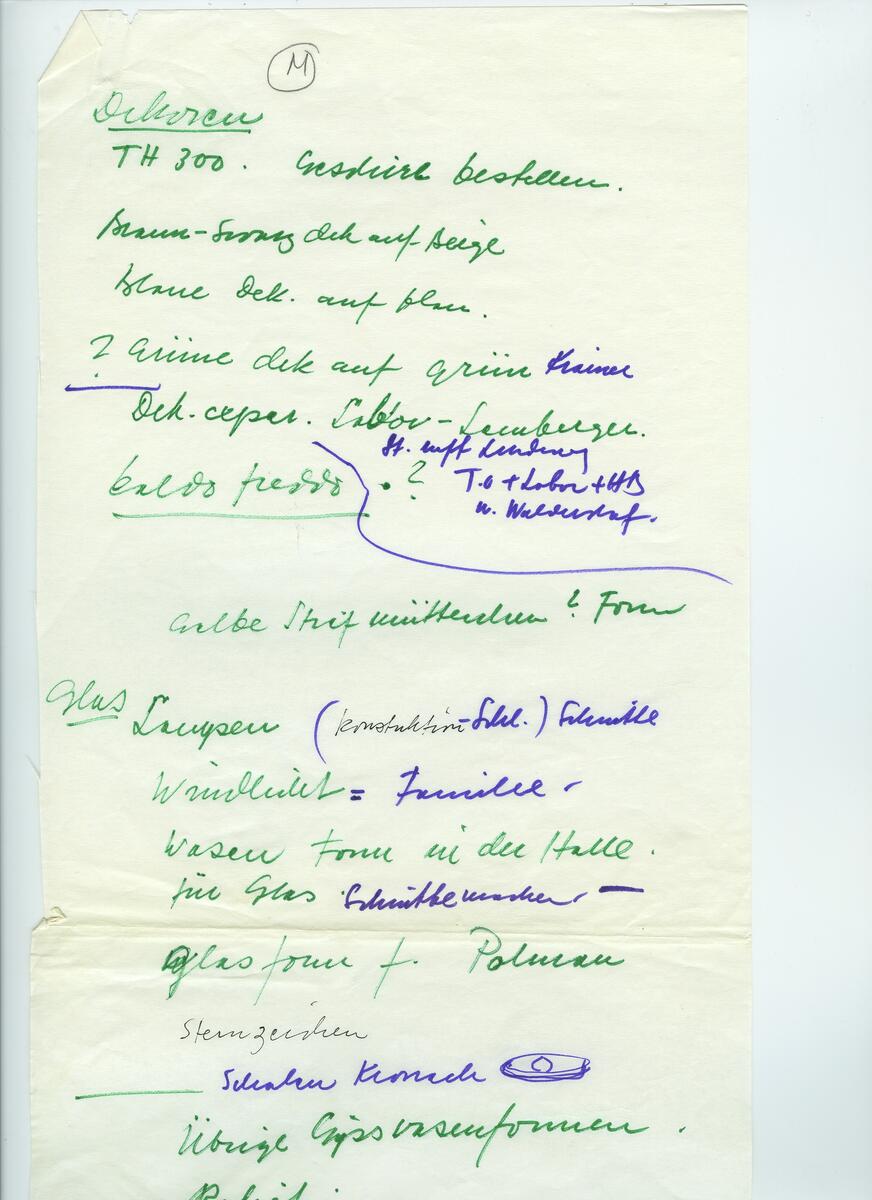 M
Dekoren
TH 300. Geschirr bestellen.
Braun-Swarz dek auf Beige
Blaue Dek. auf blau.
? Grüne dek auf grün Krainer
Dek. Labor - Lemberger.
St.
kaldo freddo . ? T.O + Labor + HB
u.
Gelbe Stifmütterchen ? Form
Glas
Lampen (konstuktion - Schl.) Schnitte
Windlicht = Familie -
Wasen Form in der Halle.
für Glas. Schnitte machen. -
Glasform f. Polman
Sternzeichen
Schalen Kronach
Übrige Gipsvasenformen.